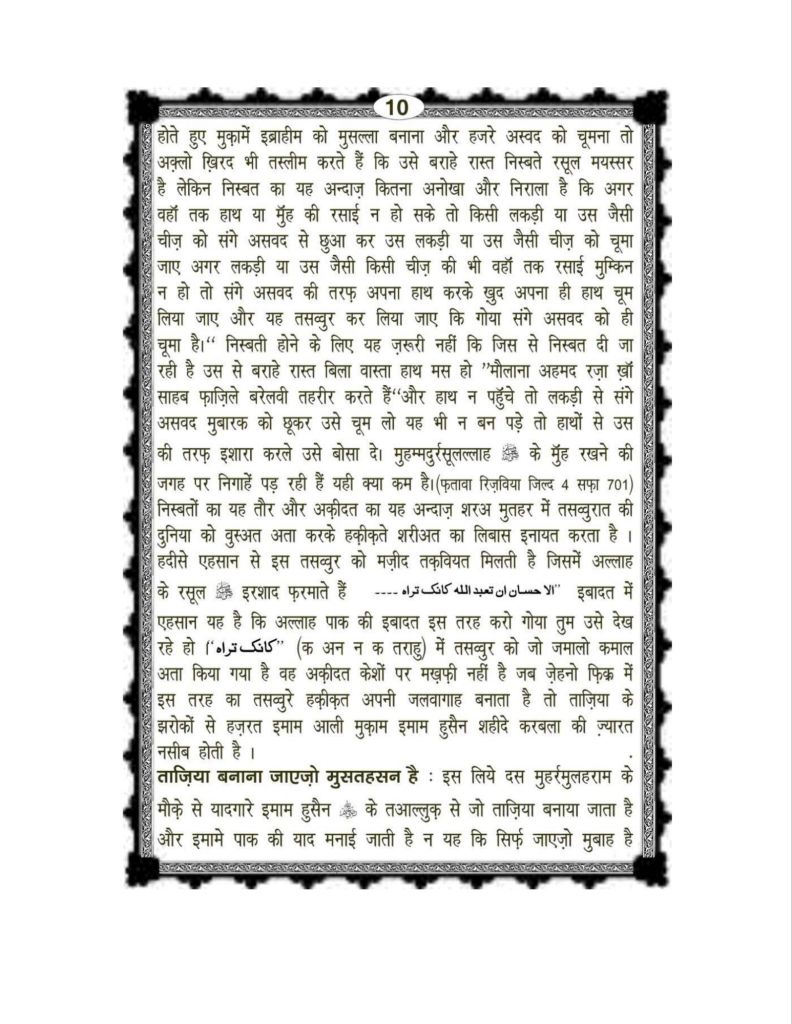 10
होते हुए मुक़ामें इब्राहीम को मुसल्ला बनाना और हजरे अस्वद को चूमना तो
अक़्लो ख़िरद भी तस्लीम करते हैं कि उसे बराहे रास्त निस्बते रसूल मयस्सर
है लेकिन निस्बत का यह अन्दाज़ कितना अनोखा और निराला है कि अगर
वहॉ तक हाथ या मुॅह की रसाई न हो सके तो किसी लकड़ी या उस जैसी
चीज़ को संगे असवद से छुआ कर उस लकड़ी या उस जैसी चीज़ को चूमा
जाए अगर लकड़ी या उस जैसी किसी चीज़ की भी वहॉ तक रसाई मुम्किन
न हो तो संगे असवद की तरफ़ अपना हाथ करके ख़ुद अपना ही हाथ चूम
लिया जाए और यह तसव्वुर कर लिया जाए कि गोया संगे असवद को ही
चूमा है।“ निस्बती होने के लिए यह ज़रूरी नहीं कि जिस से निस्बत दी जा
रही है उस से बराहे रास्त बिला वास्ता हाथ मस हो ”मौलाना अहमद रज़ा ख़ॉ
साहब फ़ाज़िले बरेलवी तहरीर करते हैं“और हाथ न पहुॅचे तो लकड़ी से संगे
असवद मुबारक को छूकर उसे चूम लो यह भी न बन पड़े तो हाथों से उस
की तरफ़ इशारा करले उसे बोसा दे। मुहम्मदुर्रसूलल्लाह ﷺ के मुॅह रखने की
जगह पर निगाहें पड़ रही हैं यही क्या कम है।(फ़तावा रिज़विया जिल्द 4 सफ़ा 701)
निस्बतों का यह तौर और अक़ीदत का यह अन्दाज़ शरअ मुतहर में तसव्वुरात की
दुनिया को वुस्अत अता करके हक़ीक़ते शरीअत का लिबास इनायत करता है ।
हदीसे एहसान से इस तसव्वुर को मज़ीद तक़वियत मिलती है जिसमें अल्लाह
के रसूल ﷺ इरशाद फ़रमाते हैं ”الا حسان ان تعبد الله كانك تراه ---- इबादत में
एहसान यह है कि अल्लाह पाक की इबादत इस तरह करो गोया तुम उसे देख
रहे हो ।”كانك تراه“ (क अन न क तराहु) में तसव्वुर को जो जमालो कमाल
अता किया गया है वह अक़ीदत केशों पर मख़फ़ी नहीं है जब ज़ेहनो फ़िक्र में
इस तरह का तसव्वुरे हक़ीक़त अपनी जलवागाह बनाता है तो ताज़िया के
झरोकों से हज़रत इमाम आली मुक़ाम इमाम हुसैन शहीदे करबला की ज़्यारत
नसीब होती है ।
ताज़िया बनाना जाएज़ो मुसतहसन है : इस लिये दस मुहर्रमुलहराम के
मौक़े से यादगारे इमाम हुसैन के तआल्लुक़ से जो ताज़िया बनाया जाता है
और इमामे पाक की याद मनाई जाती है न यह कि सिर्फ़ जाएज़ो मुबाह है